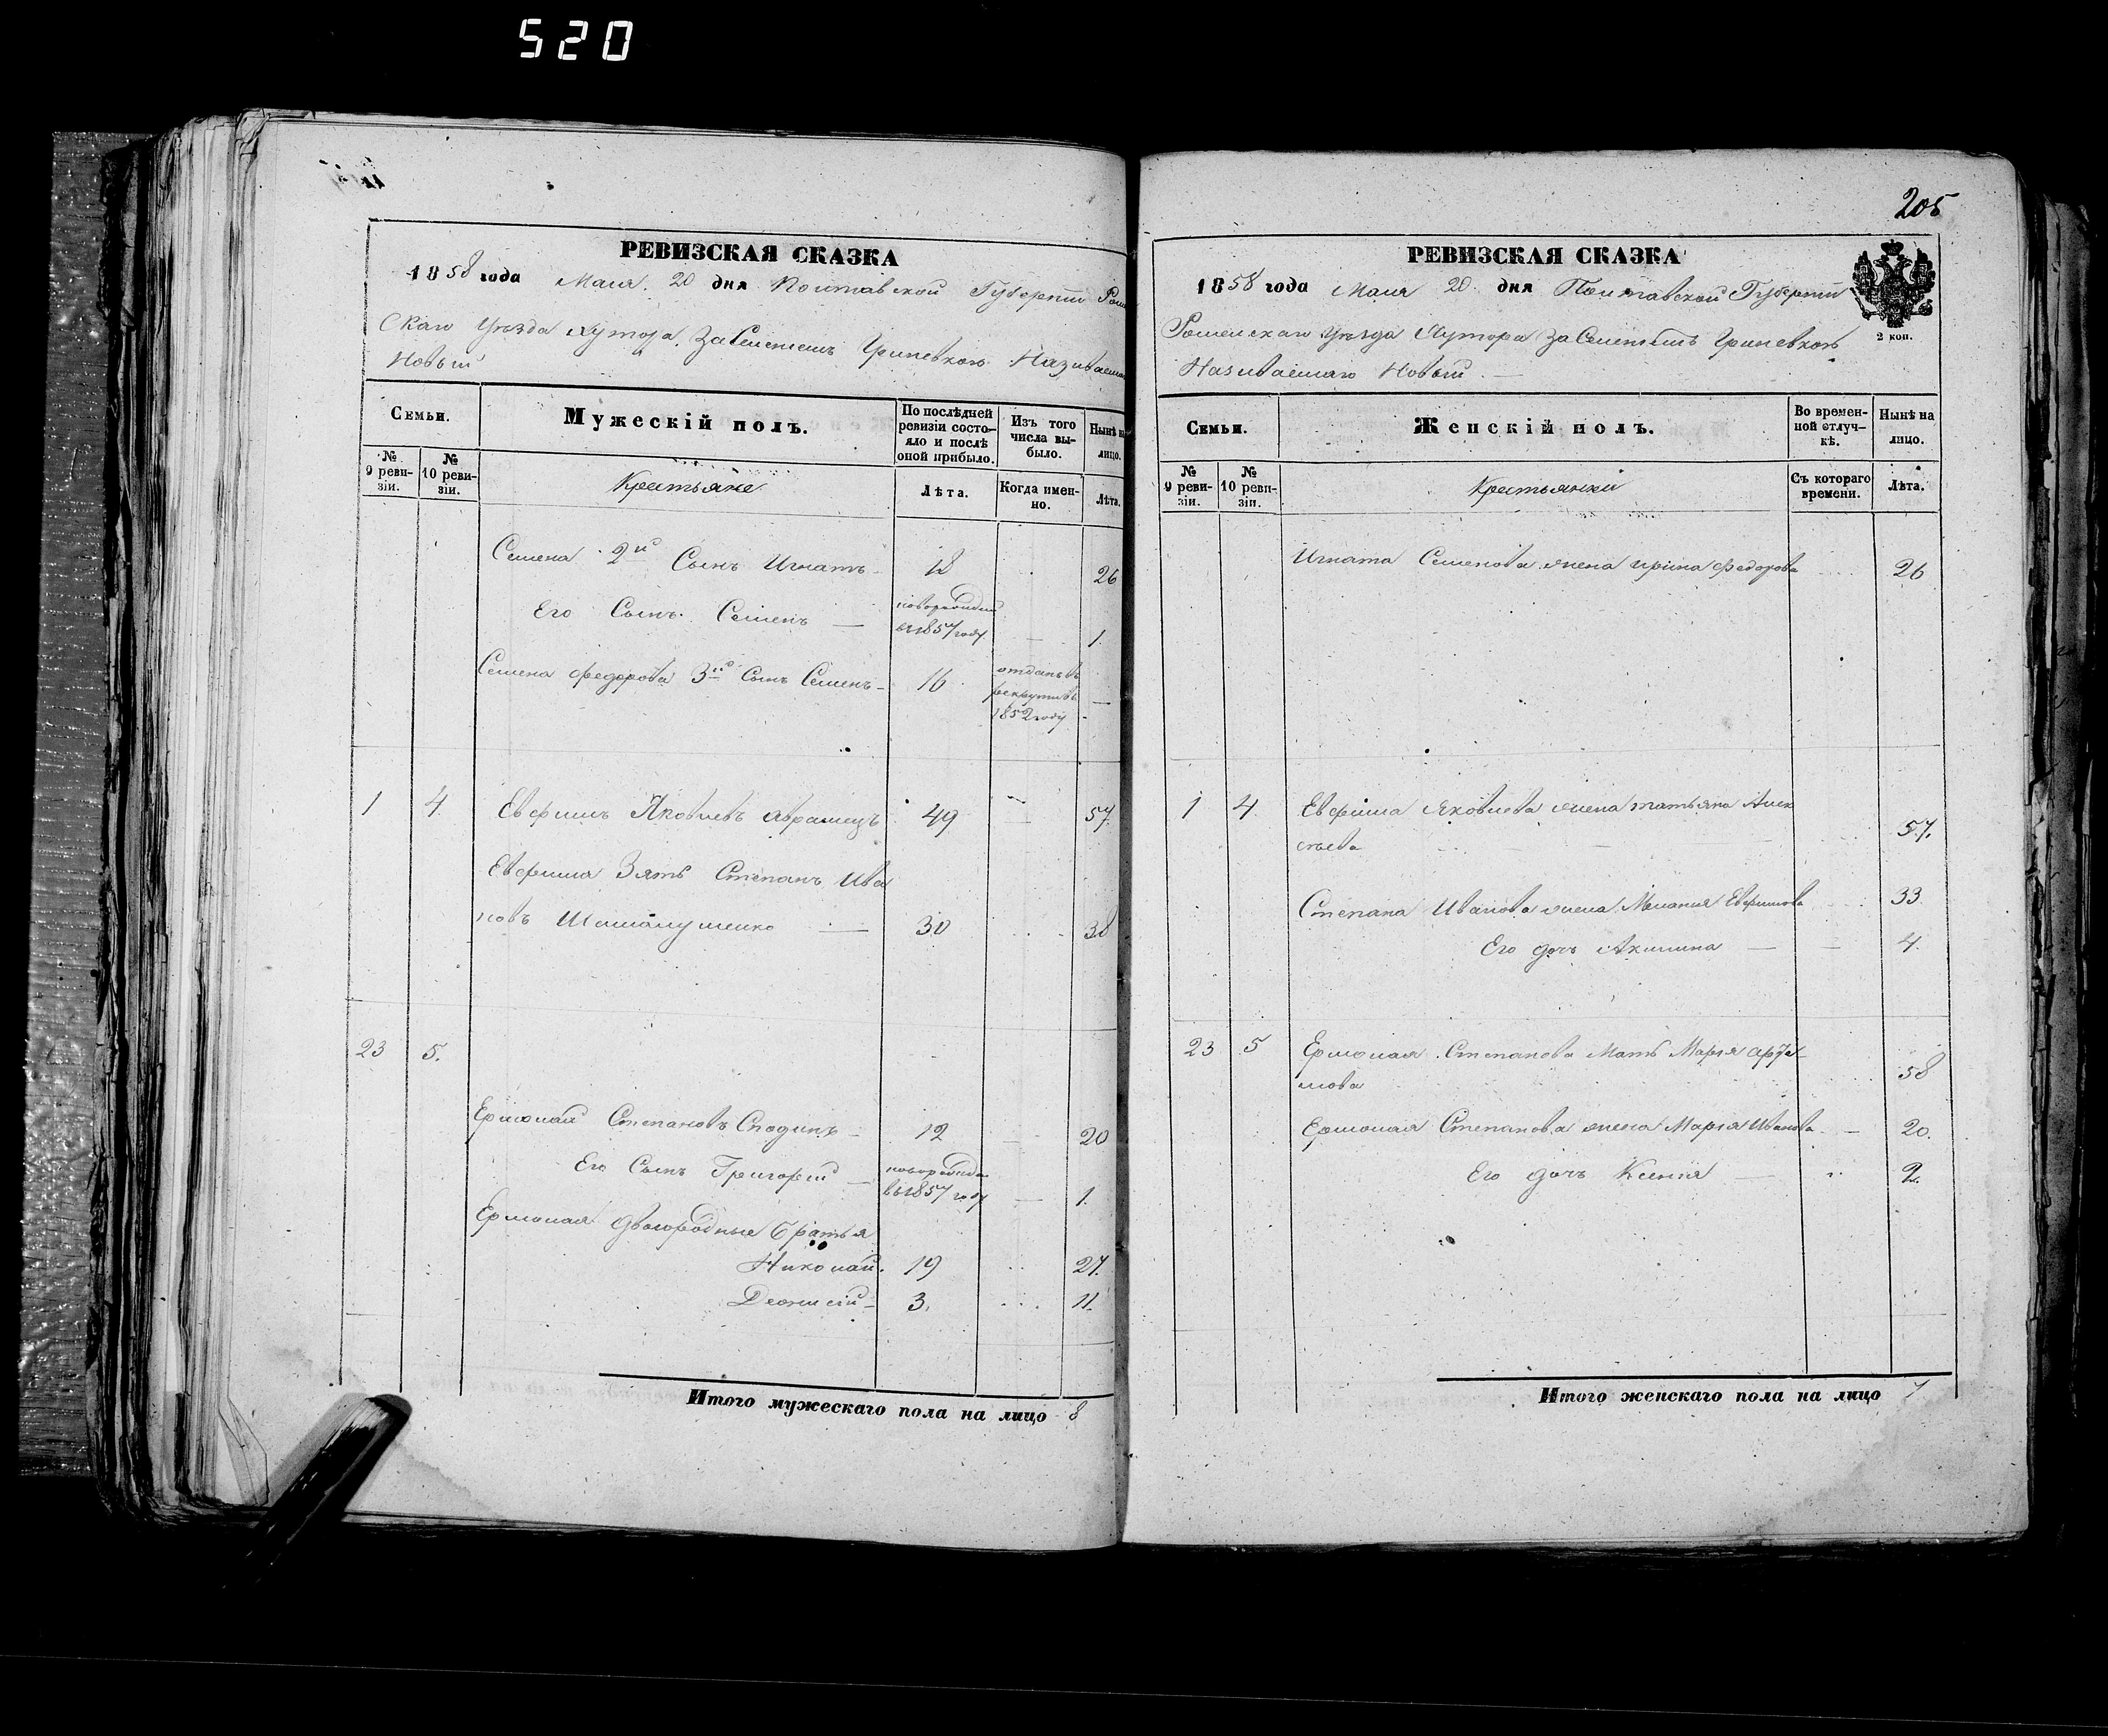 520
РЕВИЗСКАЯ СКАЗКА
1858 года Маия 20 дня Полтавской Губернiи Ромен
скаго уезда хутора Засемнемъ Гриневкою Називаема
Новый
Семьи.
Мужескій полъ.
По послѣдней ревизіи состояло и послѣ оной прибыло.
Изъ того числа выбыло.
Нынѣ на лицо.
№ 9 ревизіи.
№ 10 ревизіи.
Крестьяне
Лѣта.
Когда именно.
Лѣта.
Семена 2й Сынъ Игнатъ 18 26
Его Сынъ Семенъ — новорожден въ 1857 году — 1.
Семена Федорова 3й Сынъ Семенъ 16 отданъ въ рекруты въ 1852 году —
1 4 Евфимъ Яковлевъ 49 57.
Евфима Зять Степанъ Ива
новъ 30 38
23 5.
Ермолай Степановъ 12 20
Его Сынъ Григорій — новорожден въ 1857 году — 1.
Ермолая двоюродные братья
Николай. 19 27.
Деонисій 3. 11.
Итого мужескаго пола на лицо 8
205
РЕВИЗСКАЯ СКАЗКА
1858 года Маия 20 дня Полтавской Губернiи
2 коп.
Роменскаго уезда Хутора Засемнемъ Гриневкою
Називаемаго Новый
Семьи.
Женскій полъ.
Во временной отлучкѣ.
Нынѣ на лицо.
№ 9 ревизіи.
№ 10 ревизіи.
Крестьянки
Съ котораго времени.
Лѣта.
Игната Семенова жена Ирина Федорова 26
1 4 Евфима Яковлева жена татьяна Алек
сеева 57.
Степана Иванова жена Мелания Евфимова 33
Его дочь Акилина — 4.
23 5 Ермолая Степанова Мать Марія Арте
мова 58
Ермолая Степанова жена Марія Иванова — 20.
Его дочь Ксенія — 2
Итого женскаго пола на лицо 7